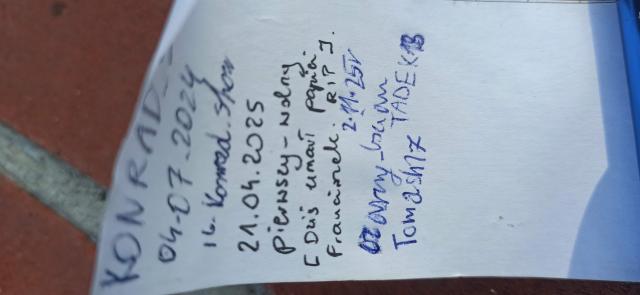 KONRAD_
04-07-2024
16. Konrad.show
21.04.2025
Pierwszy-wolny
[Dziś umarł papież
Franciszek. RIP].
2.11.25r
czarny-baam
Tomash17 TADEK13